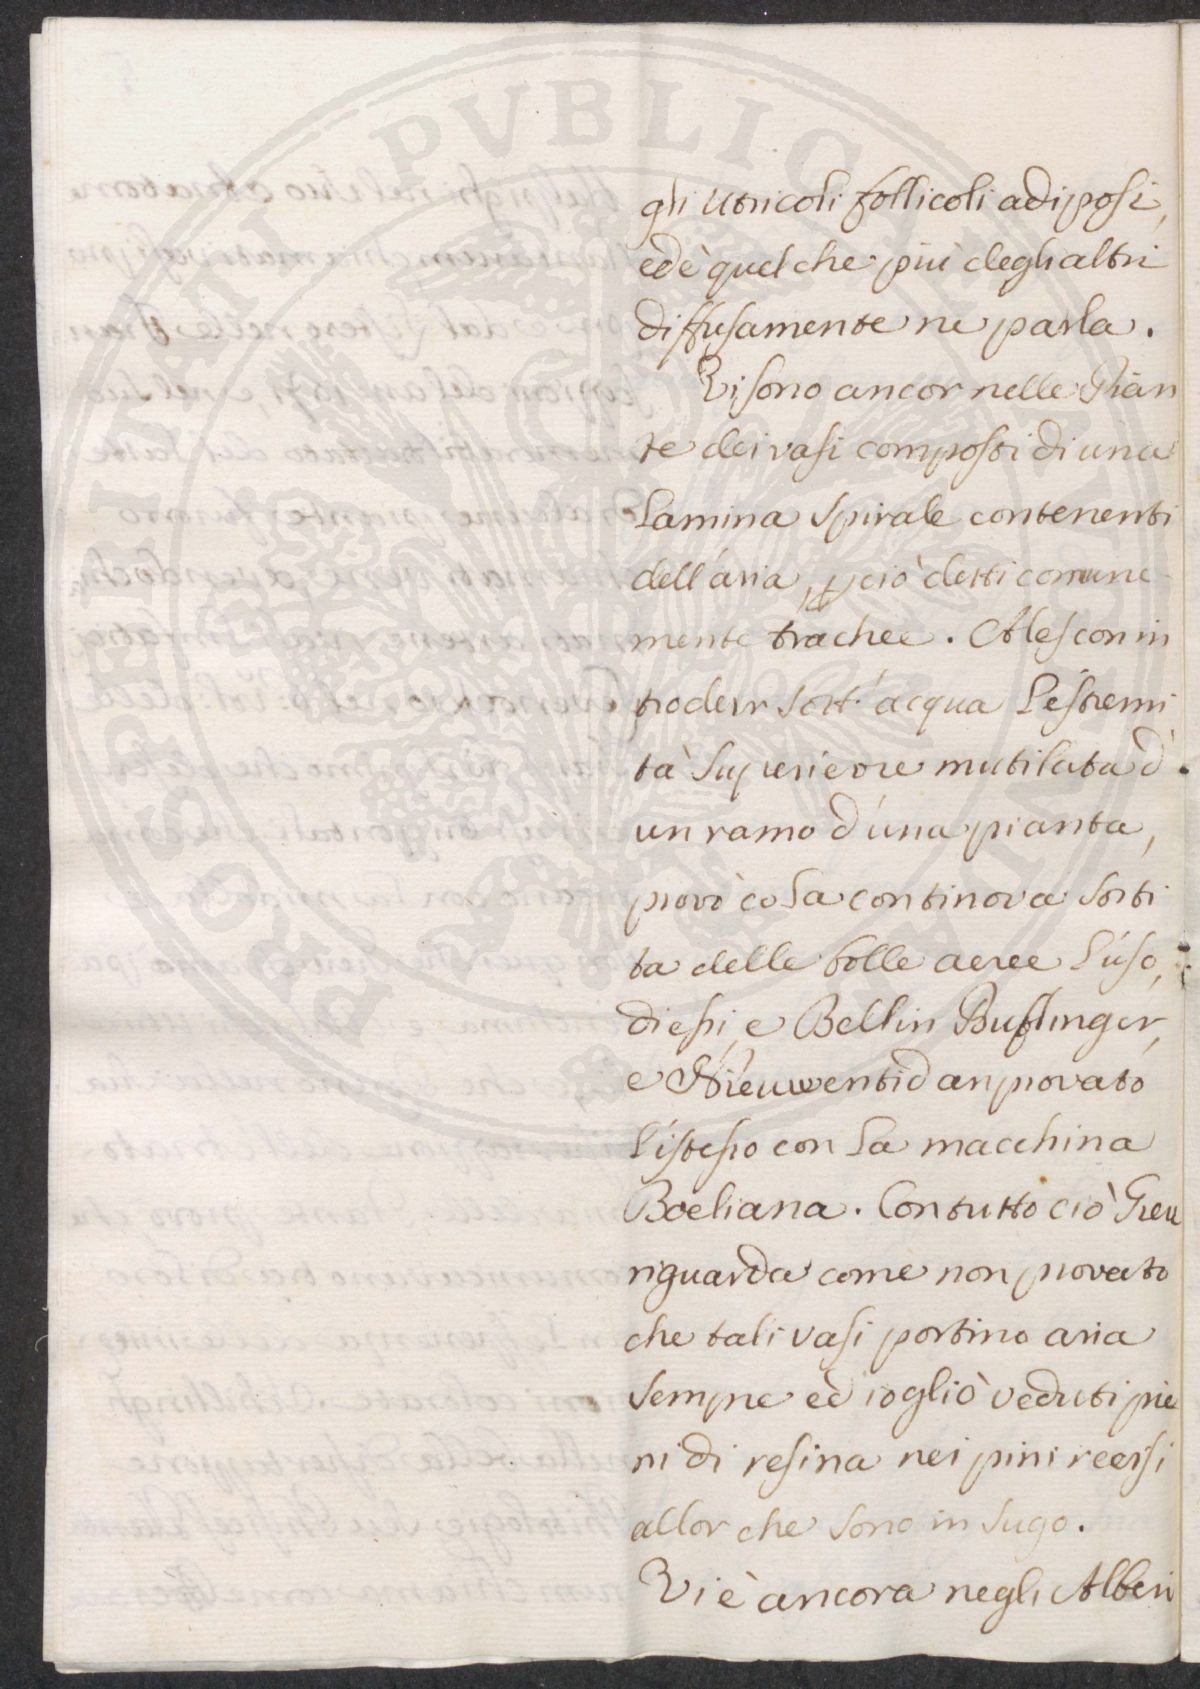 gli Utricoli follicoli adiposi,
ed è quel che più degli altri
diffusamente ne parla.
Vi sono ancor nelle Pian
te dei vasi composti di una
Lamina spirale contenenti
dell'aria, perciò detti comune
mente trachee. Ales con in
troderr sott'acqua l'estremi
tà superieore mutilata d
un ramo d'una pianta,
provò co la continova sorti
ta delle bolle aeree l'uso,
di essi, e Bellin Buflinger,
e Nieuwentid an provato
l'istesso con la macchina
Boeliana. Con tutto ciò Greu
riguarda come non provato
che tali vasi portino aria
sempre ed io gli ò veduti pie
ni di resina nei pini recisi
allor che sono in sugo.
Vi è ancora negli Alberi
PROSPERITATI PVBLICAE